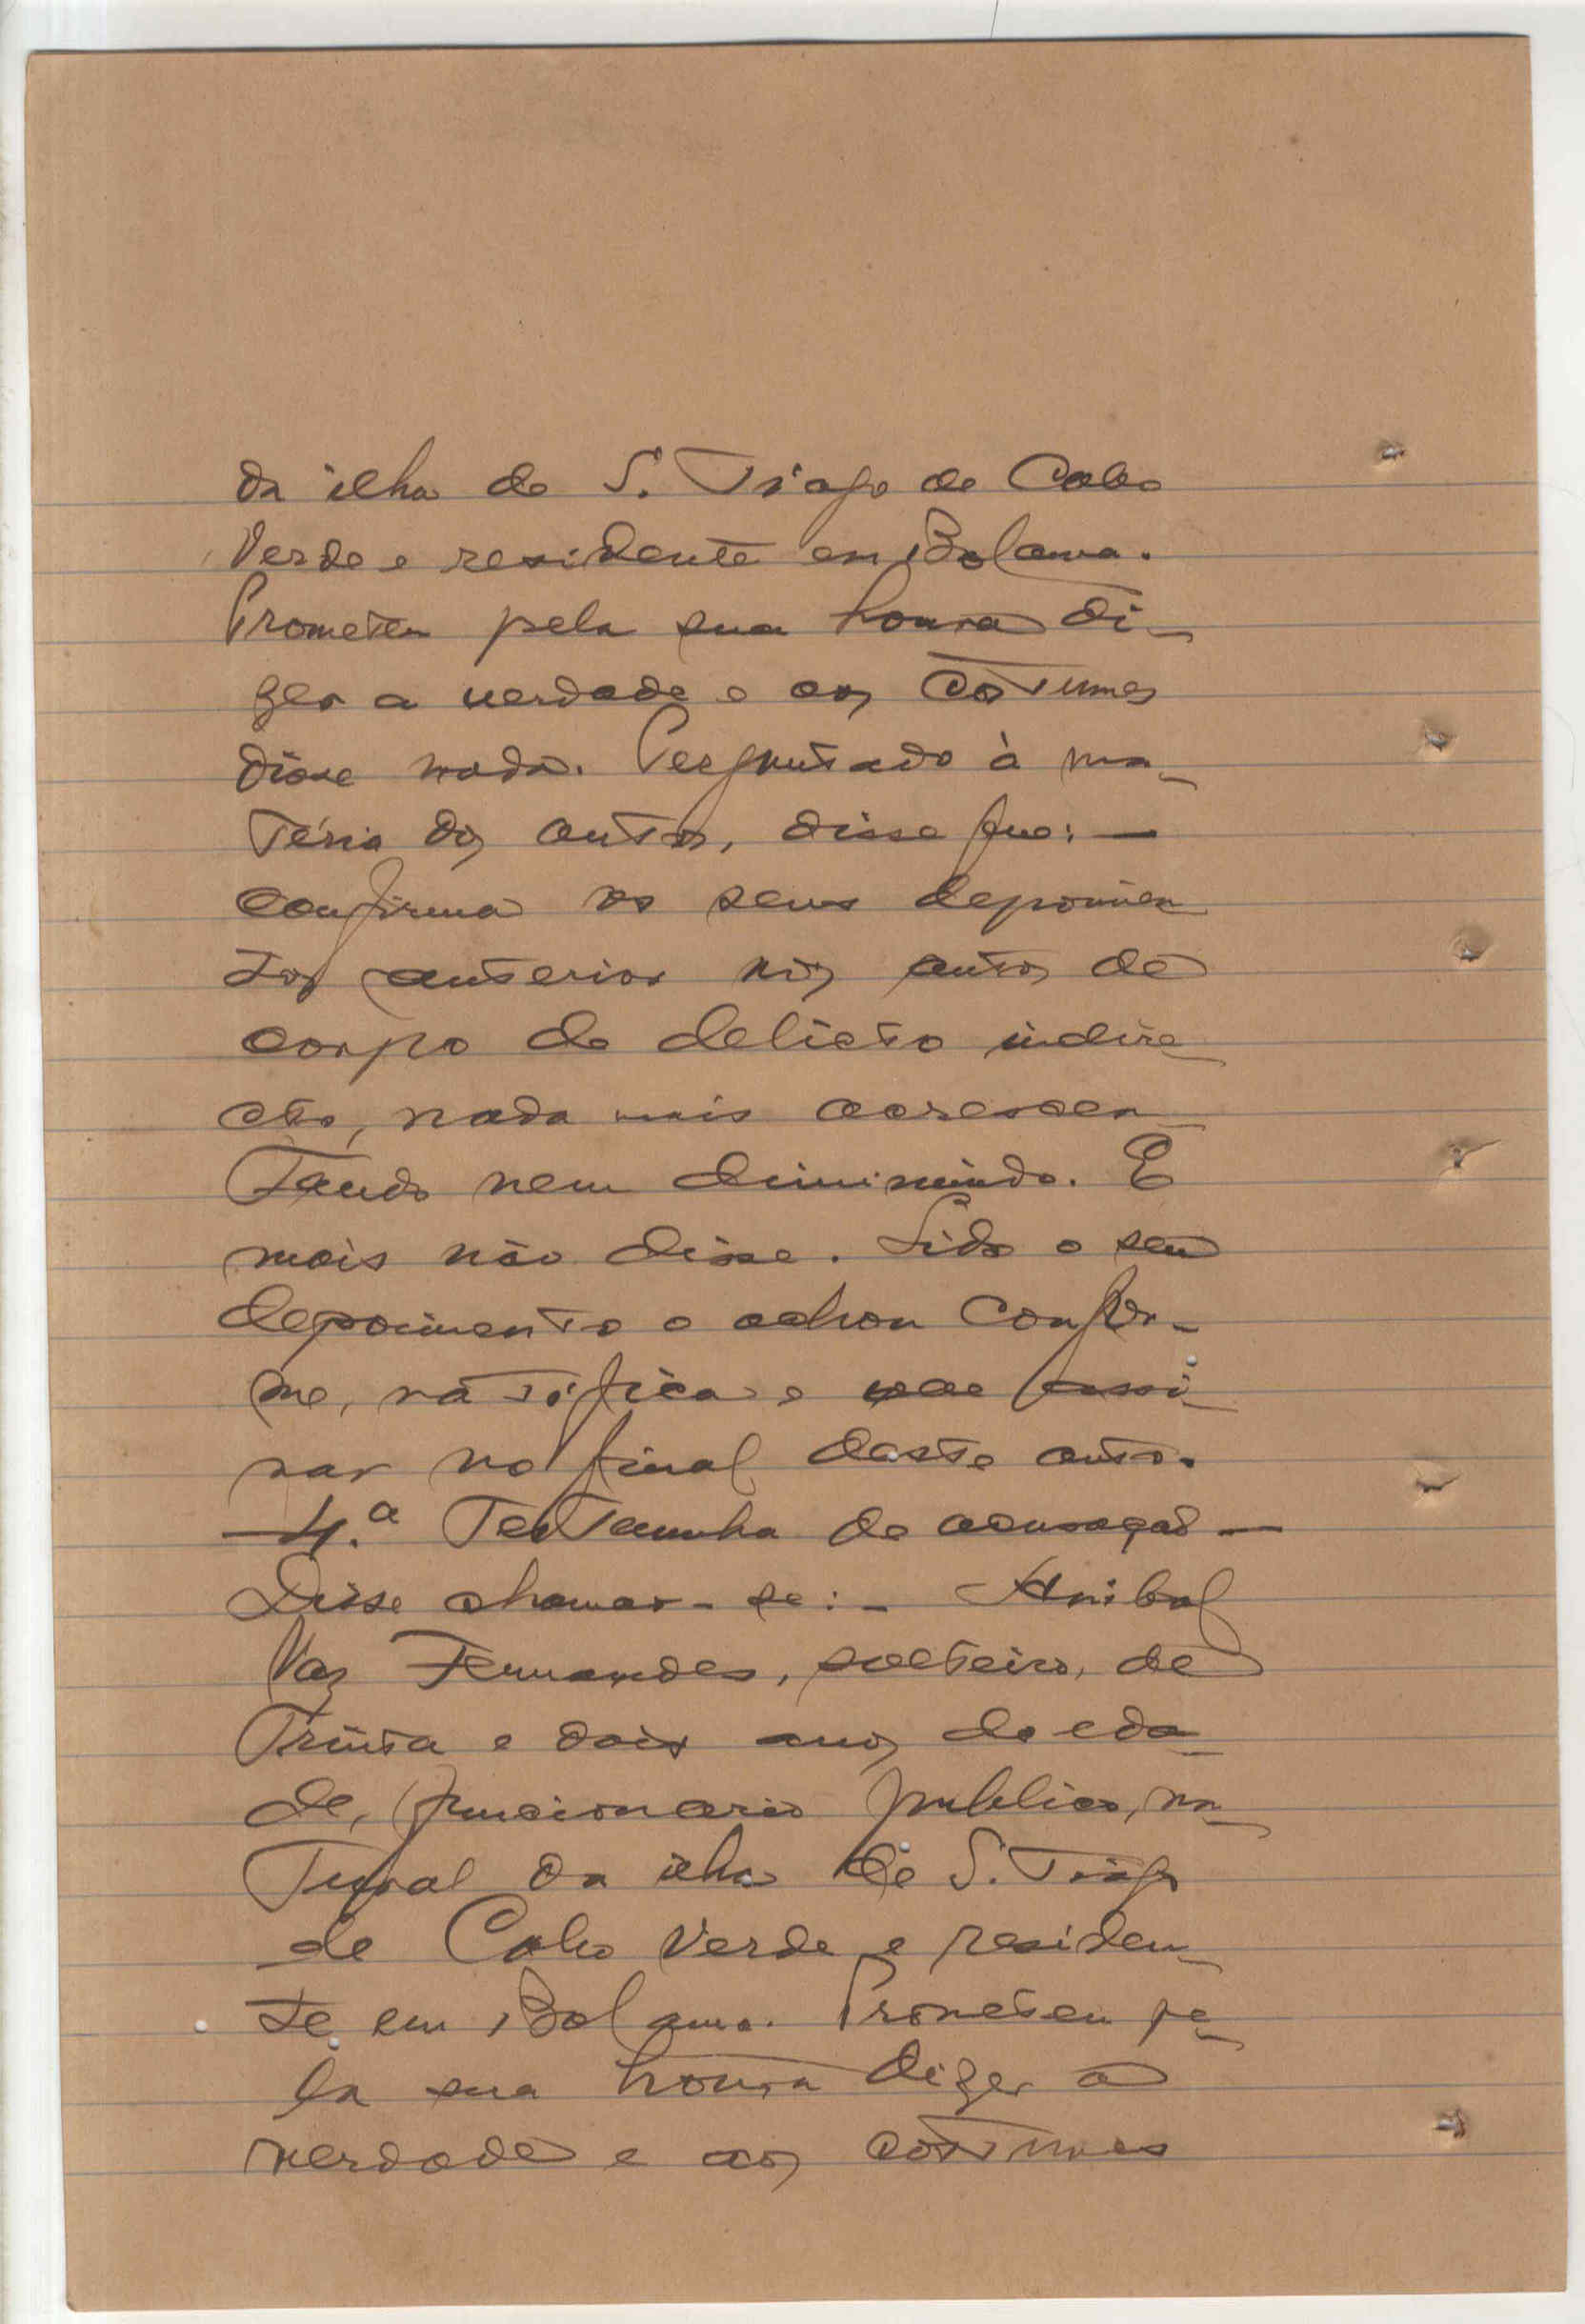 da ilha de S. Tiago de Cabo
Verde e residente em Bolama.
Prometeu pela sua honra di-
zer a verdade e aos costumes
disse nada. Perguntado à ma-
téria dos autos, disse que: —
confirma os seus depoimen
tos anterior nos autos de
corpo de delicto indire-
cto, nada mais acrescen-
tando nem diminuindo. E
mais não disse. Lido o seu
depoimento o achou confor-
me, ratifica e vae assi-
nar no final deste auto.
— 4.ª Testemunha de acusação —
Disse chamar-se: — Anibal
Vaz Fernandes, solteiro, de
trinta e dois anos de eda-
de, funcionario publico, na-
tural da ilha de S. Tiago
de Cabo Verde e residen-
te em Bolama. Prometeu pe-
la sua honra dizer a
verdade e aos costumes